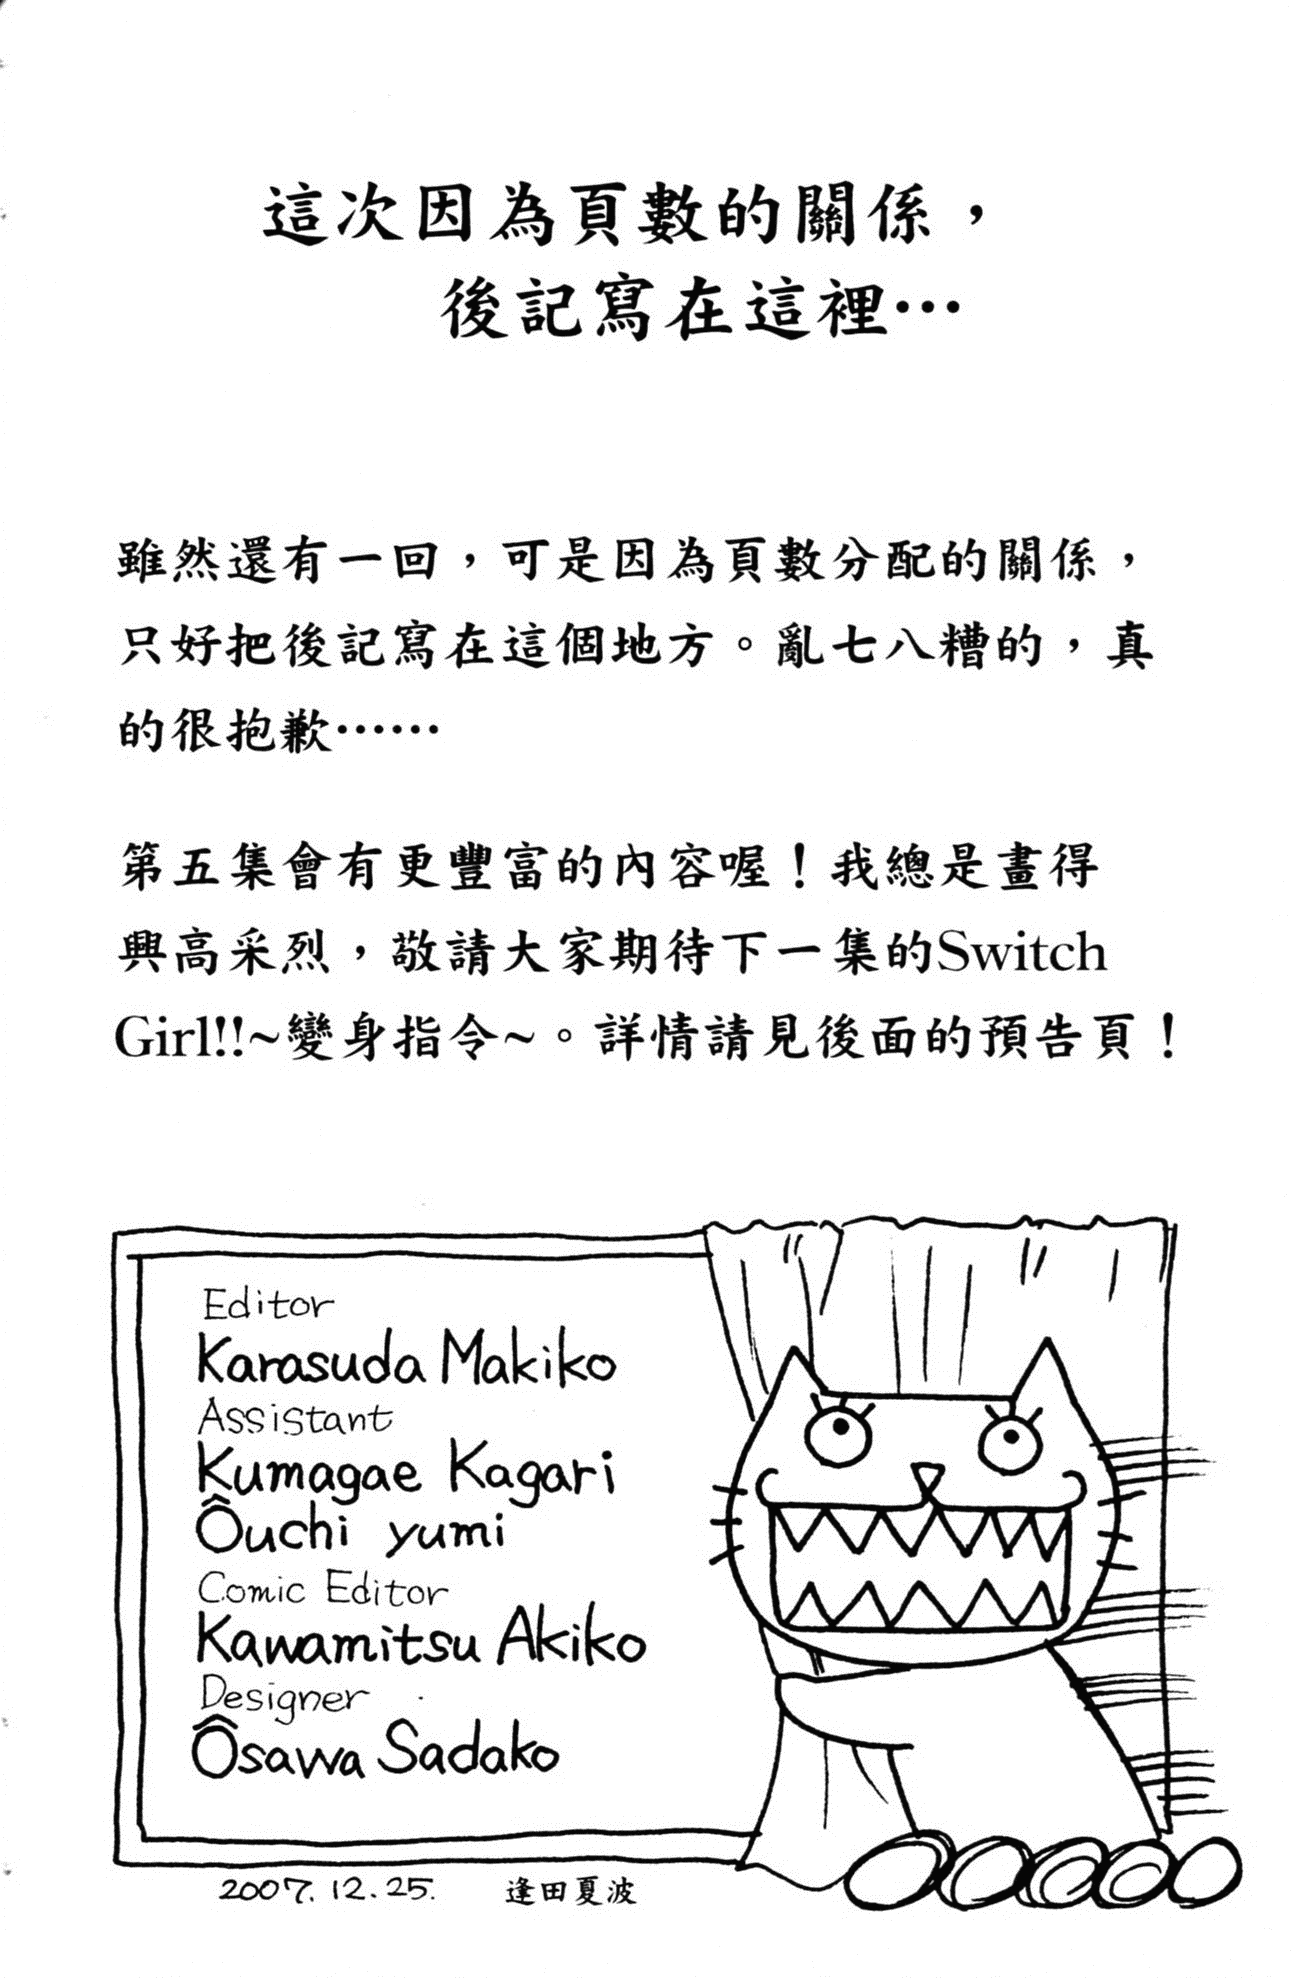 這次因為頁數的關係，
後記寫在這裡…
雖然還有一回，可是因為頁數分配的關係，
只好把後記寫在這個地方。亂七八糟的，真
的很抱歉……
第五集會有更豐富的內容喔！我總是畫得
興高采烈，敬請大家期待下一集的Switch
Girl!!~變身指令~。詳情請見後面的預告頁！
Editor
Karasuda Makiko
Assistant
Kumagae Kagari
Ôuchi yumi
Comic Editor
Kawamitsu Akiko
Designer
Ôsawa Sadako
2007.12.25. 逢田夏波